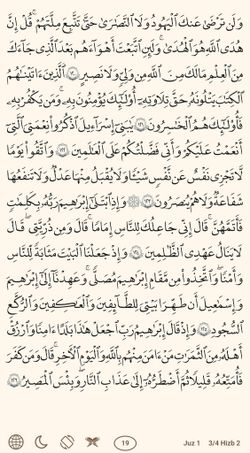 وَلَن تَرْضَىٰ عَنكَ ٱلْيَهُودُ وَلَا ٱلنَّصَٰرَىٰ حَتَّىٰ تَتَّبِعَ مِلَّتَهُمْ ۗ قُلْ إِنَّ
هُدَى ٱللَّهِ هُوَ ٱلْهُدَىٰ ۗ وَلَئِنِ ٱتَّبَعْتَ أَهْوَآءَهُم بَعْدَ ٱلَّذِى جَآءَكَ
مِنَ ٱلْعِلْمِ ۙ مَا لَكَ مِنَ ٱللَّهِ مِن وَلِىٍّ وَلَا نَصِيرٍ ١٢٠ ٱلَّذِينَ ءَاتَيْنَٰهُمُ
ٱلْكِتَٰبَ يَتْلُونَهُۥ حَقَّ تِلَاوَتِهِۦٓ أُو۟لَٰٓئِكَ يُؤْمِنُونَ بِهِۦ ۗ وَمَن يَكْفُرْ بِهِۦ
فَأُو۟لَٰٓئِكَ هُمُ ٱلْخَٰسِرُونَ ١٢١ يَٰبَنِىٓ إِسْرَٰٓءِيلَ ٱذْكُرُوا۟ نِعْمَتِىَ ٱلَّتِىٓ
أَنْعَمْتُ عَلَيْكُمْ وَأَنِّى فَضَّلْتُكُمْ عَلَى ٱلْعَٰلَمِينَ ١٢٢ وَٱتَّقُوا۟ يَوْمًا
لَّا تَجْزِى نَفْسٌ عَن نَّفْسٍ شَيْـًٔا وَلَا يُقْبَلُ مِنْهَا عَدْلٌ وَلَا تَنفَعُهَا
شَفَٰعَةٌ وَلَا هُمْ يُنصَرُونَ ١٢٣ ۞ وَإِذِ ٱبْتَلَىٰٓ إِبْرَٰهِـۧمَ رَبُّهُۥ بِكَلِمَٰتٍ
فَأَتَمَّهُنَّ ۖ قَالَ إِنِّى جَاعِلُكَ لِلنَّاسِ إِمَامًا ۖ قَالَ وَمِن ذُرِّيَّتِى ۖ قَالَ
لَا يَنَالُ عَهْدِى ٱلظَّٰلِمِينَ ١٢٤ وَإِذْ جَعَلْنَا ٱلْبَيْتَ مَثَابَةً لِّلنَّاسِ
وَأَمْنًا وَٱتَّخِذُوا۟ مِن مَّقَامِ إِبْرَٰهِـۧمَ مُصَلًّى ۖ وَعَهِدْنَآ إِلَىٰٓ إِبْرَٰهِـۧمَ
وَإِسْمَٰعِيلَ أَن طَهِّرَا بَيْتِىَ لِلطَّآئِفِينَ وَٱلْعَٰكِفِينَ وَٱلرُّكَّعِ
ٱلسُّجُودِ ١٢٥ وَإِذْ قَالَ إِبْرَٰهِـۧمُ رَبِّ ٱجْعَلْ هَٰذَا بَلَدًا ءَامِنًا وَٱرْزُقْ
أَهْلَهُۥ مِنَ ٱلثَّمَرَٰتِ مَنْ ءَامَنَ مِنْهُم بِٱللَّهِ وَٱلْيَوْمِ ٱلْءَاخِرِ ۖ قَالَ وَمَن كَفَرَ
فَأُمَتِّعُهُۥ قَلِيلًا ثُمَّ أَضْطَرُّهُۥٓ إِلَىٰ عَذَابِ ٱلنَّارِ ۖ وَبِئْسَ ٱلْمَصِيرُ ١٢٦
19 Juz 1 3/4 Hizb 2